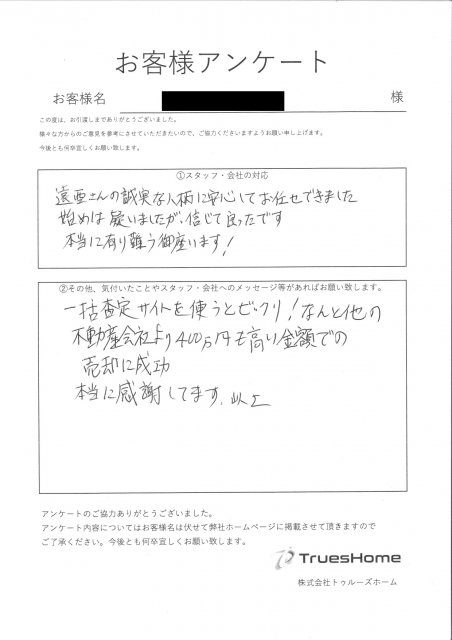 お客様アンケート
お客様名
様
この度は、お引渡しまでありがとうございました。
様々な方からのご意見を参考にさせていただきたいので、ご協力くださいますようお願い申し上げます。
今後とも何卒宜しくお願い致します。
①スタッフ・会社の対応
遠西さんの誠実な人柄に安心してお任せできました
始めは疑いましたが、信じて良ったです
本当に有り難う御座います!
②その他、気付いたことやスタッフ・会社へのメッセージ等があればお願い致します。
一括査定サイトを使うとビックリ!なんと他の
不動産会社より400万円も高い金額での
売却に成功
本当に感謝してます。以上
アンケートのご協力ありがとうございました。
アンケート内容についてはお客様名は伏せて弊社ホームページに掲載させて頂きますので
ご了承ください。今後とも何卒宜しくお願い致します。
TruesHome
株式会社トゥルーズホーム